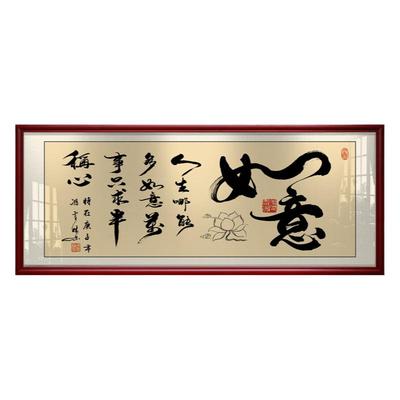 如意
人生哪能
多如意万
事只求半
稱心
時在庚子年